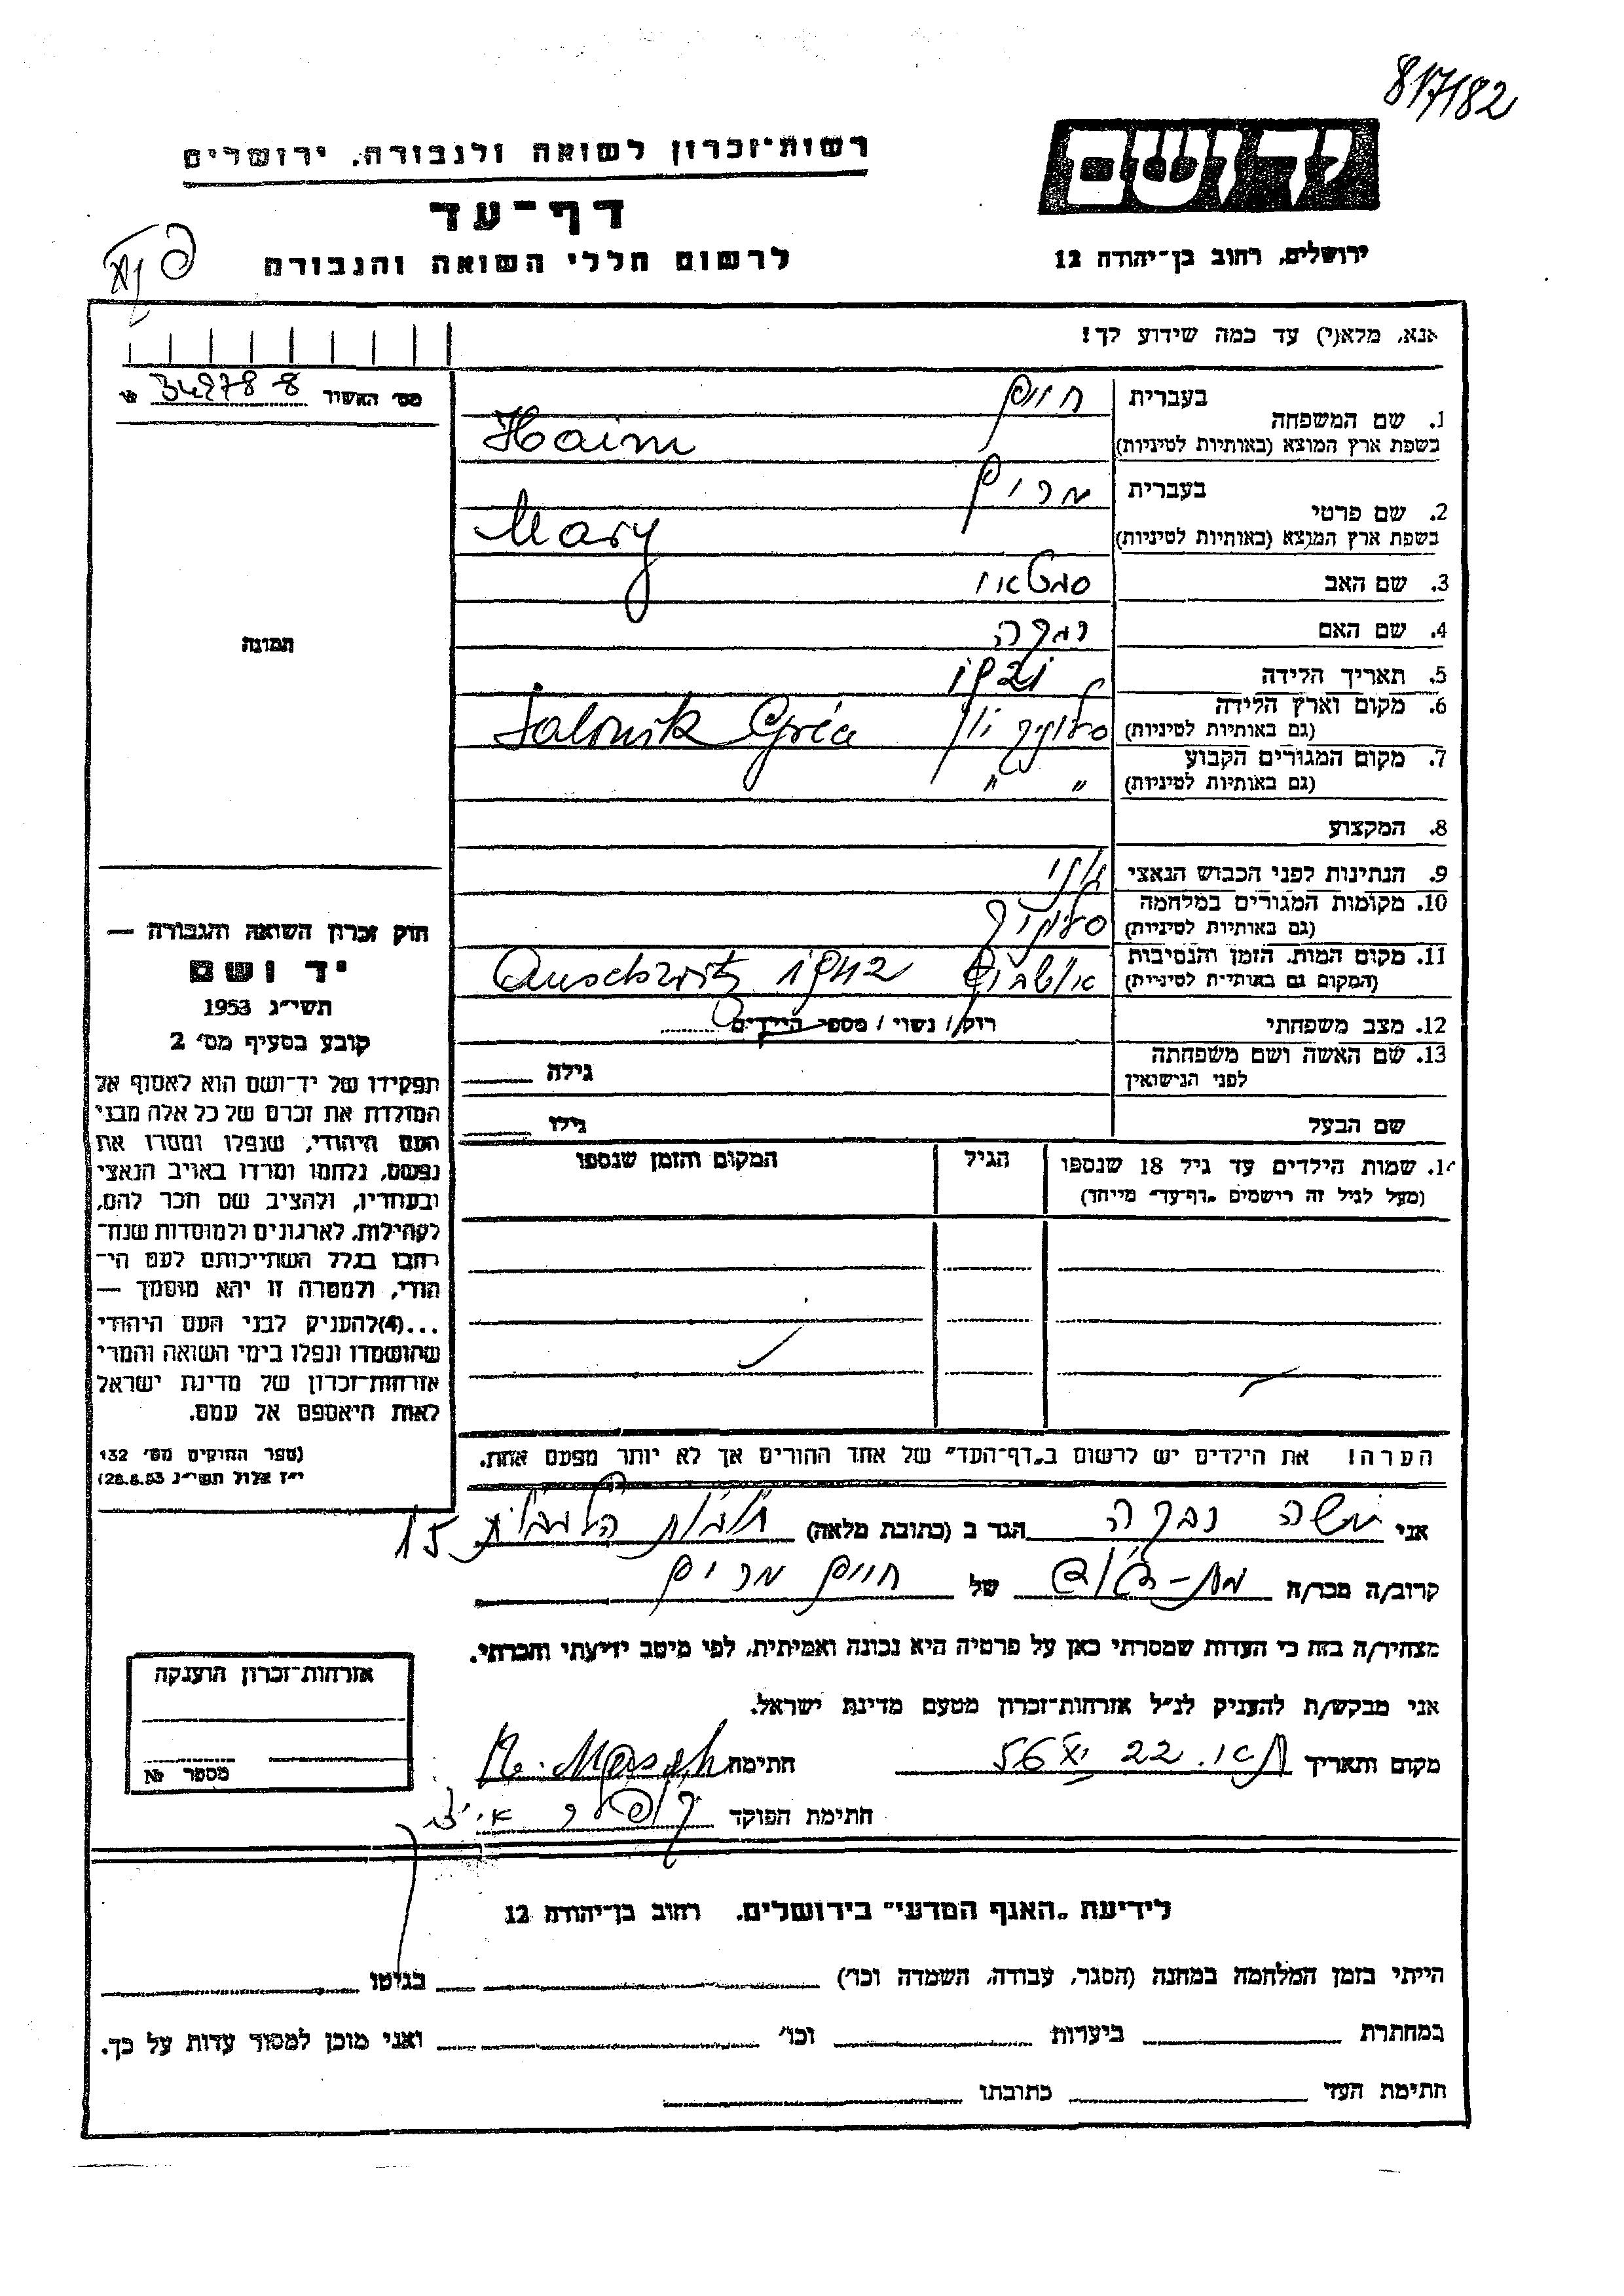 817/182
רשות־זכרון לשואה ולגבורה, ירושלים
דף־עד
לרשום חללי השואה והגבורה
יד ושם
ירושלים, רחוב בן־יהודה 12
אנא, מלא(י) עד כמה שידוע לך!
מס׳ האשור 34278-8 №
תמונה
חוק זכרון השואה והגבורה —
יד ושם
תשי״ג 1953
קובע בסעיף מס׳ 2
תפקידו של יד־ושם הוא לאסוף אל
המולדת את זכרם של כל אלה מבני
העם היהודי, שנפלו ומסרו את
נפשם, נלחמו ומרדו באויב הנאצי
ובעוזריו, ולהציב שם וזכר להם,
לקהילות, לארגונים ולמוסדות שנח־
רבו בגלל השתייכותם לעם הי־
הודי, ולמטרה זו יהא מוסמך —
...(4)להעניק לבני העם היהודי
שהושמדו ונפלו בימי השואה והמרי
אזרחות־זכרון של מדינת ישראל
לאות היאספם אל עמם.
(ספר החוקים מס׳ 132
י״ז אלול תשי״ג 28.8.53)
1. שם המשפחה בעברית חיים
בשפת ארץ המוצא (באותיות לטיניות) Haim
2. שם פרטי בעברית מרים
בשפת ארץ המוצא (באותיות לטיניות) Mary
3. שם האב
4. שם האם
5. תאריך הלידה
6. מקום וארץ הלידה
(גם באותיות לטיניות) סלוניקי יון Salonik Gréce
7. מקום המגורים הקבוע
(גם באותיות לטיניות) " "
8. המקצוע
9. הנתינות לפני הכבוש הנאצי יוני
10. מקומות המגורים במלחמה
(גם באותיות לטיניות) סלוניקי
11. מקום המות, הזמן והנסיבות
(המקום גם באותיות לטיניות) אושביץ 1942 Auschwitz
12. מצב משפחתי רווק / נשוי / מספר הילדים
13. שם האשה ושם משפחתה
לפני הנישואין גילה
שם הבעל גילו
14. שמות הילדים עד גיל 18 שנספו הגיל המקום והזמן שנספו
(מעל לגיל זה רישמים „דף־עד״ מיוחד)
הערה! את הילדים יש לרשום ב„דף־העד״ של אחד ההורים אך לא יותר מפעם אחת.
אני משה הגר ב (כתובת מלאה) 15
קרוב/ה מכר/ה של חיים מרים
מצהיר/ה בזה כי העדות שמסרתי כאן על פרטיה היא נכונה ואמיתית, לפי מיטב ידיעתי והכרתי.
אני מבקש/ת להעניק לנ״ל אזרחות־זכרון מטעם מדינת ישראל.
מקום ותאריך ת״א. 22 56 חתימה
חתימת הפוקד
אזרחות־זכרון הוענקה
מספר №
לידיעת „האגף המדעי״ בירושלים, רחוב בן־יהודה 12
הייתי בזמן המלחמה במחנה (הסגר, עבודה, השמדה וכו׳) בגיטו
במחתרת ביערות וכו׳ ואני מוכן למסור עדות על כך.
חתימת העד כתובתו